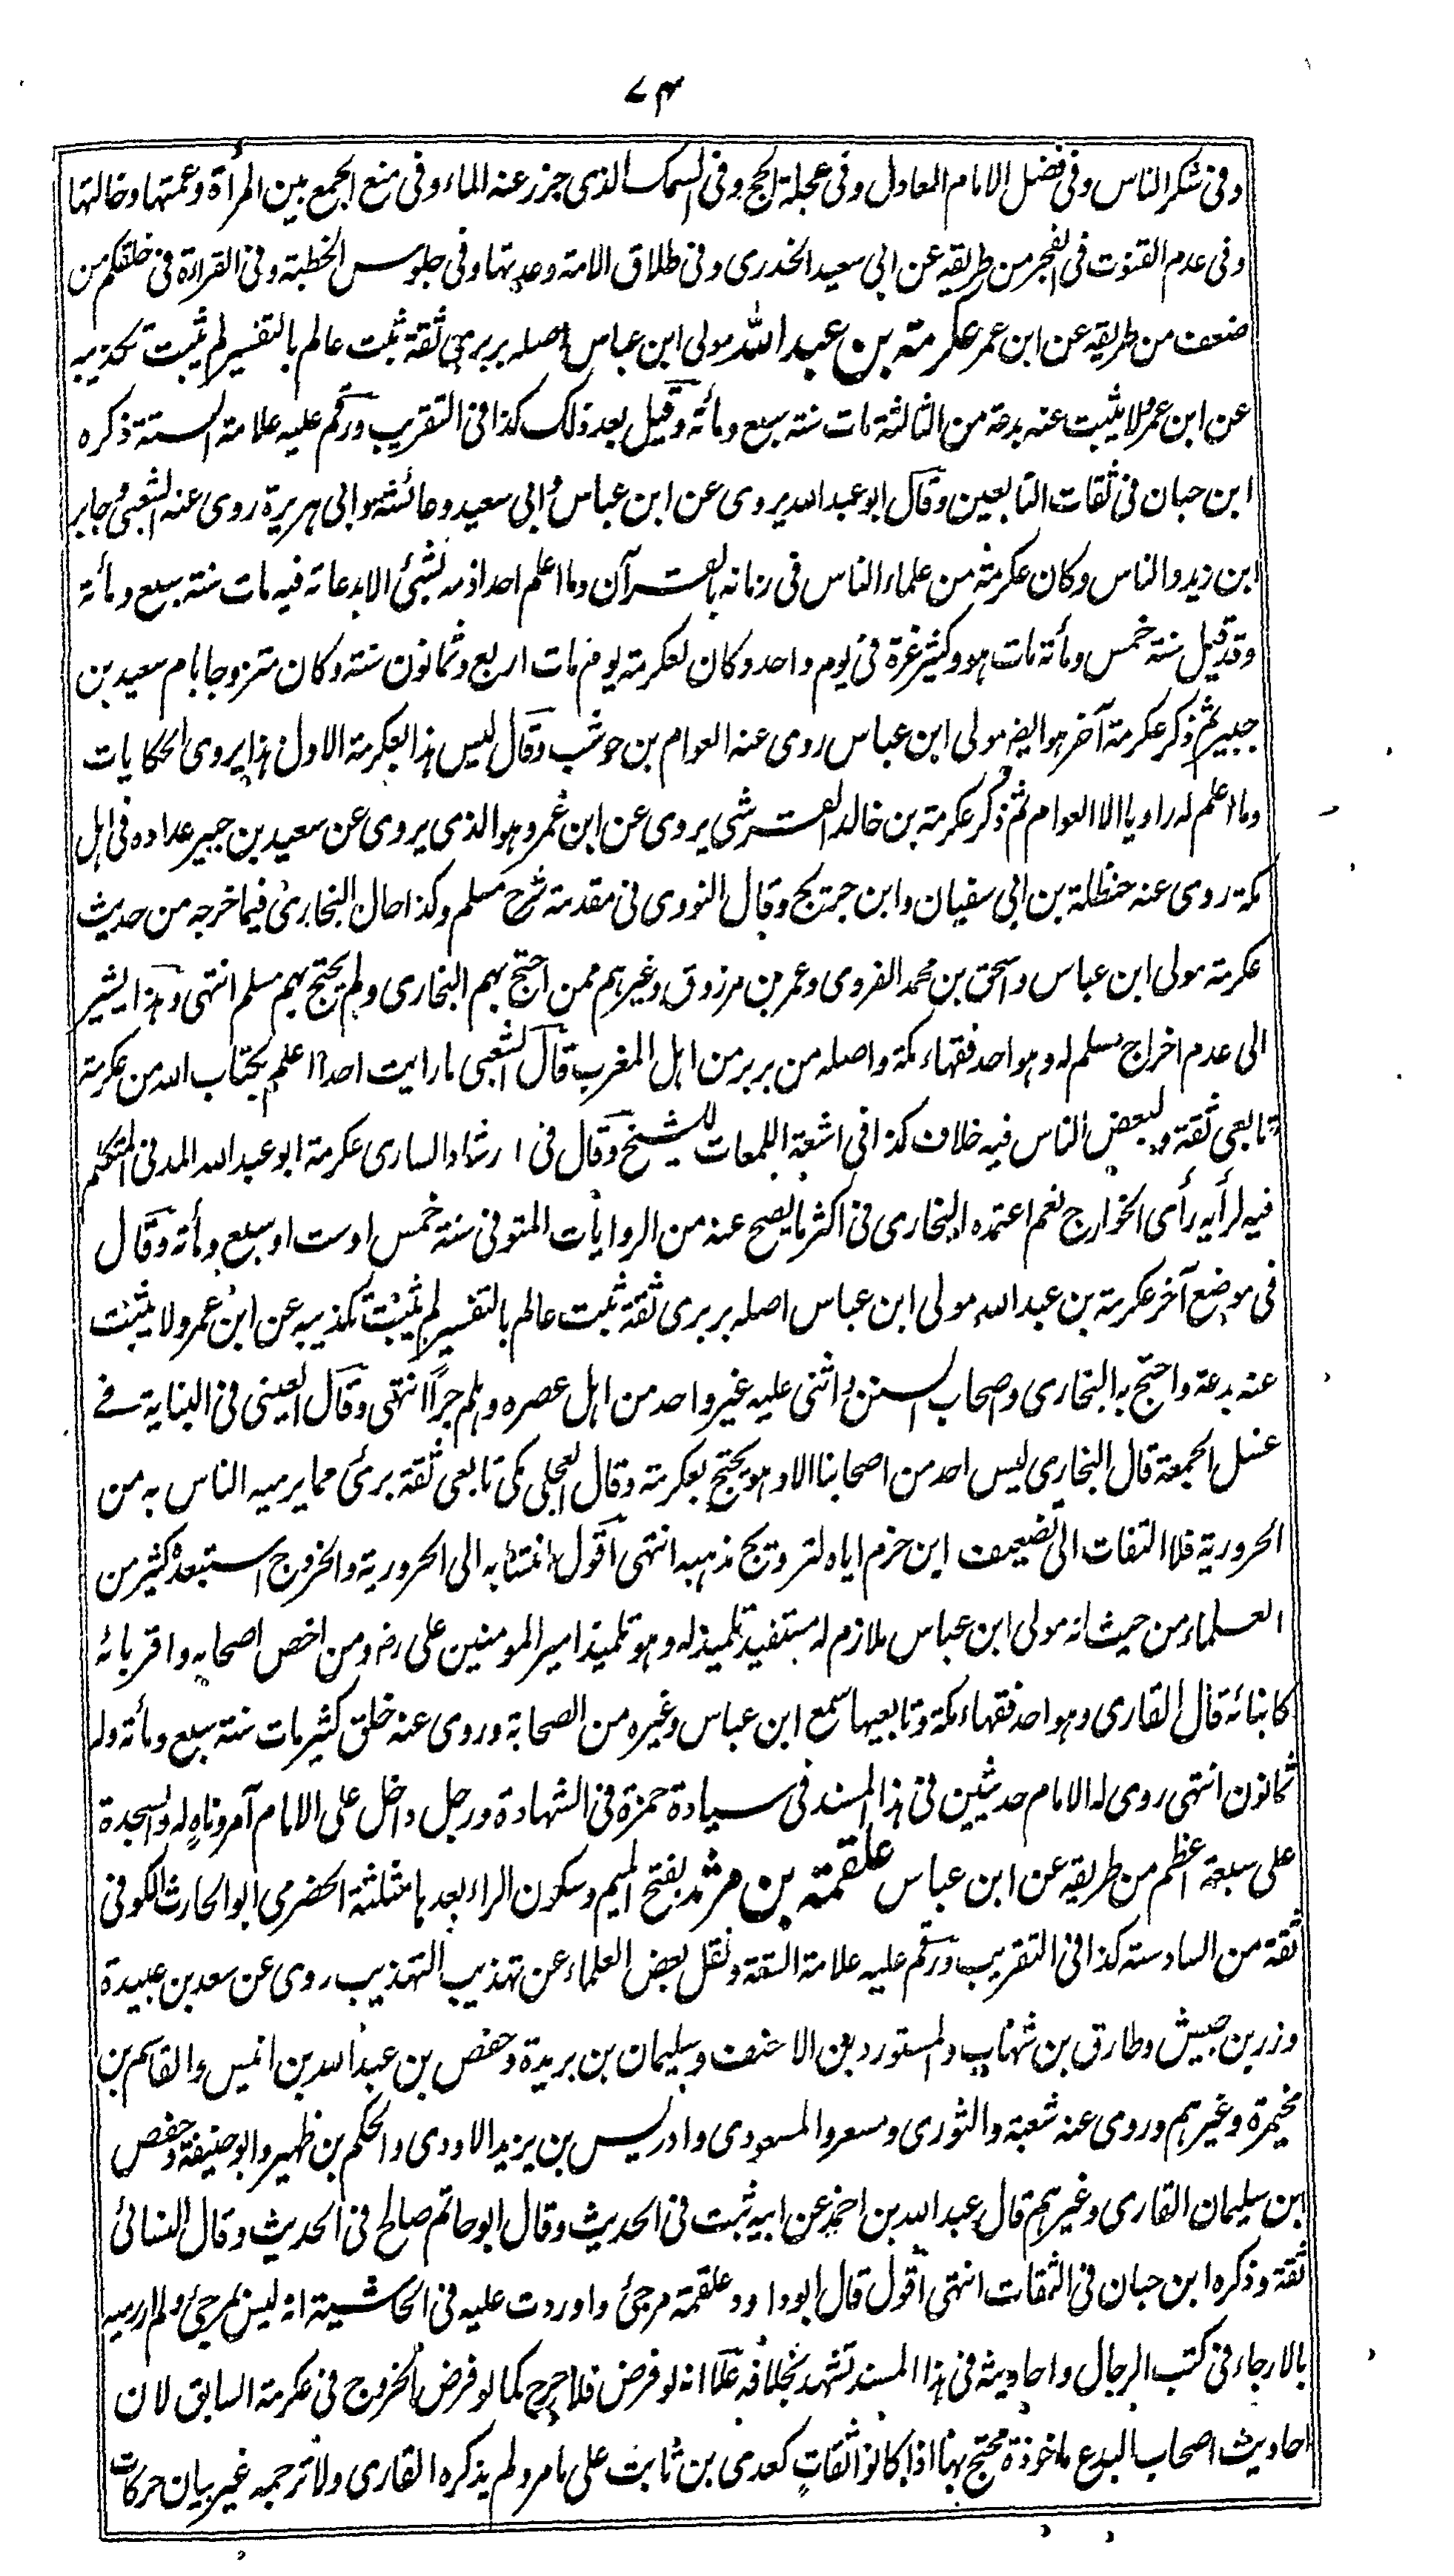 ٧٣
وفى شكر الناس وفى فضل الامام العادل وفى عجلة الحج وفى السمك الذى جزر عنه الماء وفى منع الجمع بين المرأة وعمتها وخالتها
وفى عدم القنوت فى الفجر من طريقه عن ابى سعيد الخدرى وفى طلاق الامة وعدتها وفى جلوس الخطبة وفى القراءة فى خلقكم من
ضعف من طريقه عن ابن عمر عكرمة بن عبد الله مولى ابن عباس اصله بربرى ثقة ثبت عالم بالتفسير لم يثبت تكذيبه
عن ابن عمر ولا يثبت عنه بدعة من الثالثة مات سنة سبع ومأئة وقيل بعد ذلك كذا فى التقريب ورقم عليه علامة الستة ذكره
ابن حبان فى ثقات التابعين وقال ابو عبد الله يروى عن ابن عباس وابى سعيد وعائشة وابى هريرة روى عنه الشعبى وجابر
ابن زيد والناس وكان عكرمة من علماء الناس فى زمانه بالقرآن وما اعلم احدا ذمه بشئ الا بدعاته فيه مات سنة سبع ومأئة
وقد قيل سنة خمس ومأئة مات هو وكثير عزة فى يوم واحد وكان لعكرمة يوم مات اربع وثمانون سنة وكان متزوجا بام سعيد بن
جبير ثم ذكر عكرمة آخر هو ايضا مولى ابن عباس روى عنه العوام بن حوشب وقال ليس هذا بعكرمة الاول هذا يروى الحكايات
وما اعلم له راويا الا العوام ثم ذكر عكرمة بن خالد القرشى يروى عن ابن عمر وهو الذى يروى عن سعيد بن جبير عداده فى اهل
مكة روى عنه حنظلة بن ابى سفيان وابن جريج وقال النووى فى مقدمة شرح مسلم وكذا حال البخارى فيما خرجه من حديث
عكرمة مولى ابن عباس واسحق بن محمد الفروى وعمر بن مرزوق وغيرهم ممن احتج بهم البخارى ولم يحتج بهم مسلم انتهى وهذا يشير
الى عدم اخراج مسلم له وهو احد فقهاء مكة واصله من بربر من اهل المغرب قال الشعبى ما رايت احدا اعلم بكتاب الله من عكرمة
تابعى ثقة ولبعض الناس فيه خلاف كذا فى اشعة اللمعات للشيخ وقال فى ارشاد السارى عكرمة ابو عبد الله المدنى المتكلم
فيه لرأيه رأى الخوارج نعم اعتمده البخارى فى اكثر ما يصح عنه من الروايات المتوفى سنة خمس او ست او سبع ومأئة وقال
فى موضع آخر عكرمة بن عبد الله مولى ابن عباس اصله بربرى ثقة ثبت عالم بالتفسير لم يثبت تكذيبه عن ابن عمر ولا يثبت
عنه بدعة واحتج به البخارى واصحاب السنن واثنى عليه غير واحد من اهل عصره وهلم جرًّا انتهى وقال العينى فى البناية فى
غسل الجمعة قال البخارى ليس احد من اصحابنا الا وهو يحتج بعكرمة وقال العجلى مكى تابعى ثقة برئ مما يرميه الناس به من
الحرورية فلا التفات الى تضعيف ابن حزم اياه لترويج مذهبه انتهى اقول انتسابه الى الحرورية والخروج استبعده كثير من
العلماء من حيث انه مولى ابن عباس ملازم له مستفيد تلميذ له وهو تلميذ امير المومنين على رض ومن اخص اصحابه واقربائه
كابنائه قال القارى وهو احد فقهاء مكة وتابعيها سمع ابن عباس وغيره من الصحابة وروى عنه خلق كثير مات سنة سبع ومأئة وله
ثمانون انتهى روى له الامام حديثين فى هذا المسند فى سيادة حمزة فى الشهادة ورجل داخل على الامام آمر وناه له والسجدة
على سبعة اعظم من طريقه عن ابن عباس علقمة بن مرثد بفتح الميم وسكون الراء بعدها مثلثة الحضرمى ابو الحارث الكوفى
ثقة من السادسة كذا فى التقريب ورقم عليه علامة الستة ونقل بعض العلماء عن تهذيب التهذيب روى عن سعد بن عبيدة
وزر بن حبيش وطارق بن شهاب والمستورد بن الاحنف وسليمان بن بريدة وحفص بن عبد الله بن انيس والقاسم بن
مخيمرة وغيرهم وروى عنه شعبة والثورى ومسعر والمسعودى وادريس بن يزيد الاودى والحكم بن ظهير وابو حنيفة وحفص
ابن سليمان القارى وغيرهم قال عبد الله بن احمد عن ابيه ثبت فى الحديث وقال ابو حاتم صالح فى الحديث وقال النسائى
ثقة وذكره ابن حبان فى الثقات انتهى اقول قال ابو داود علقمة مرجئ واوردت عليه فى الحاشية انه ليس بمرجئ ولم ار رميه
بالارجاء فى كتب الرجال واحاديثه فى هذا المسند تشهد بخلافه على انه لو فرض فلا جرح كما لو فرض الخروج فى عكرمة السابق لان
احاديث اصحاب البدع ماخوذة محتج بها اذا كانوا ثقات كعدى بن ثابت على ما مر ولم يذكره القارى ولا ترجمه غير بيان حركات